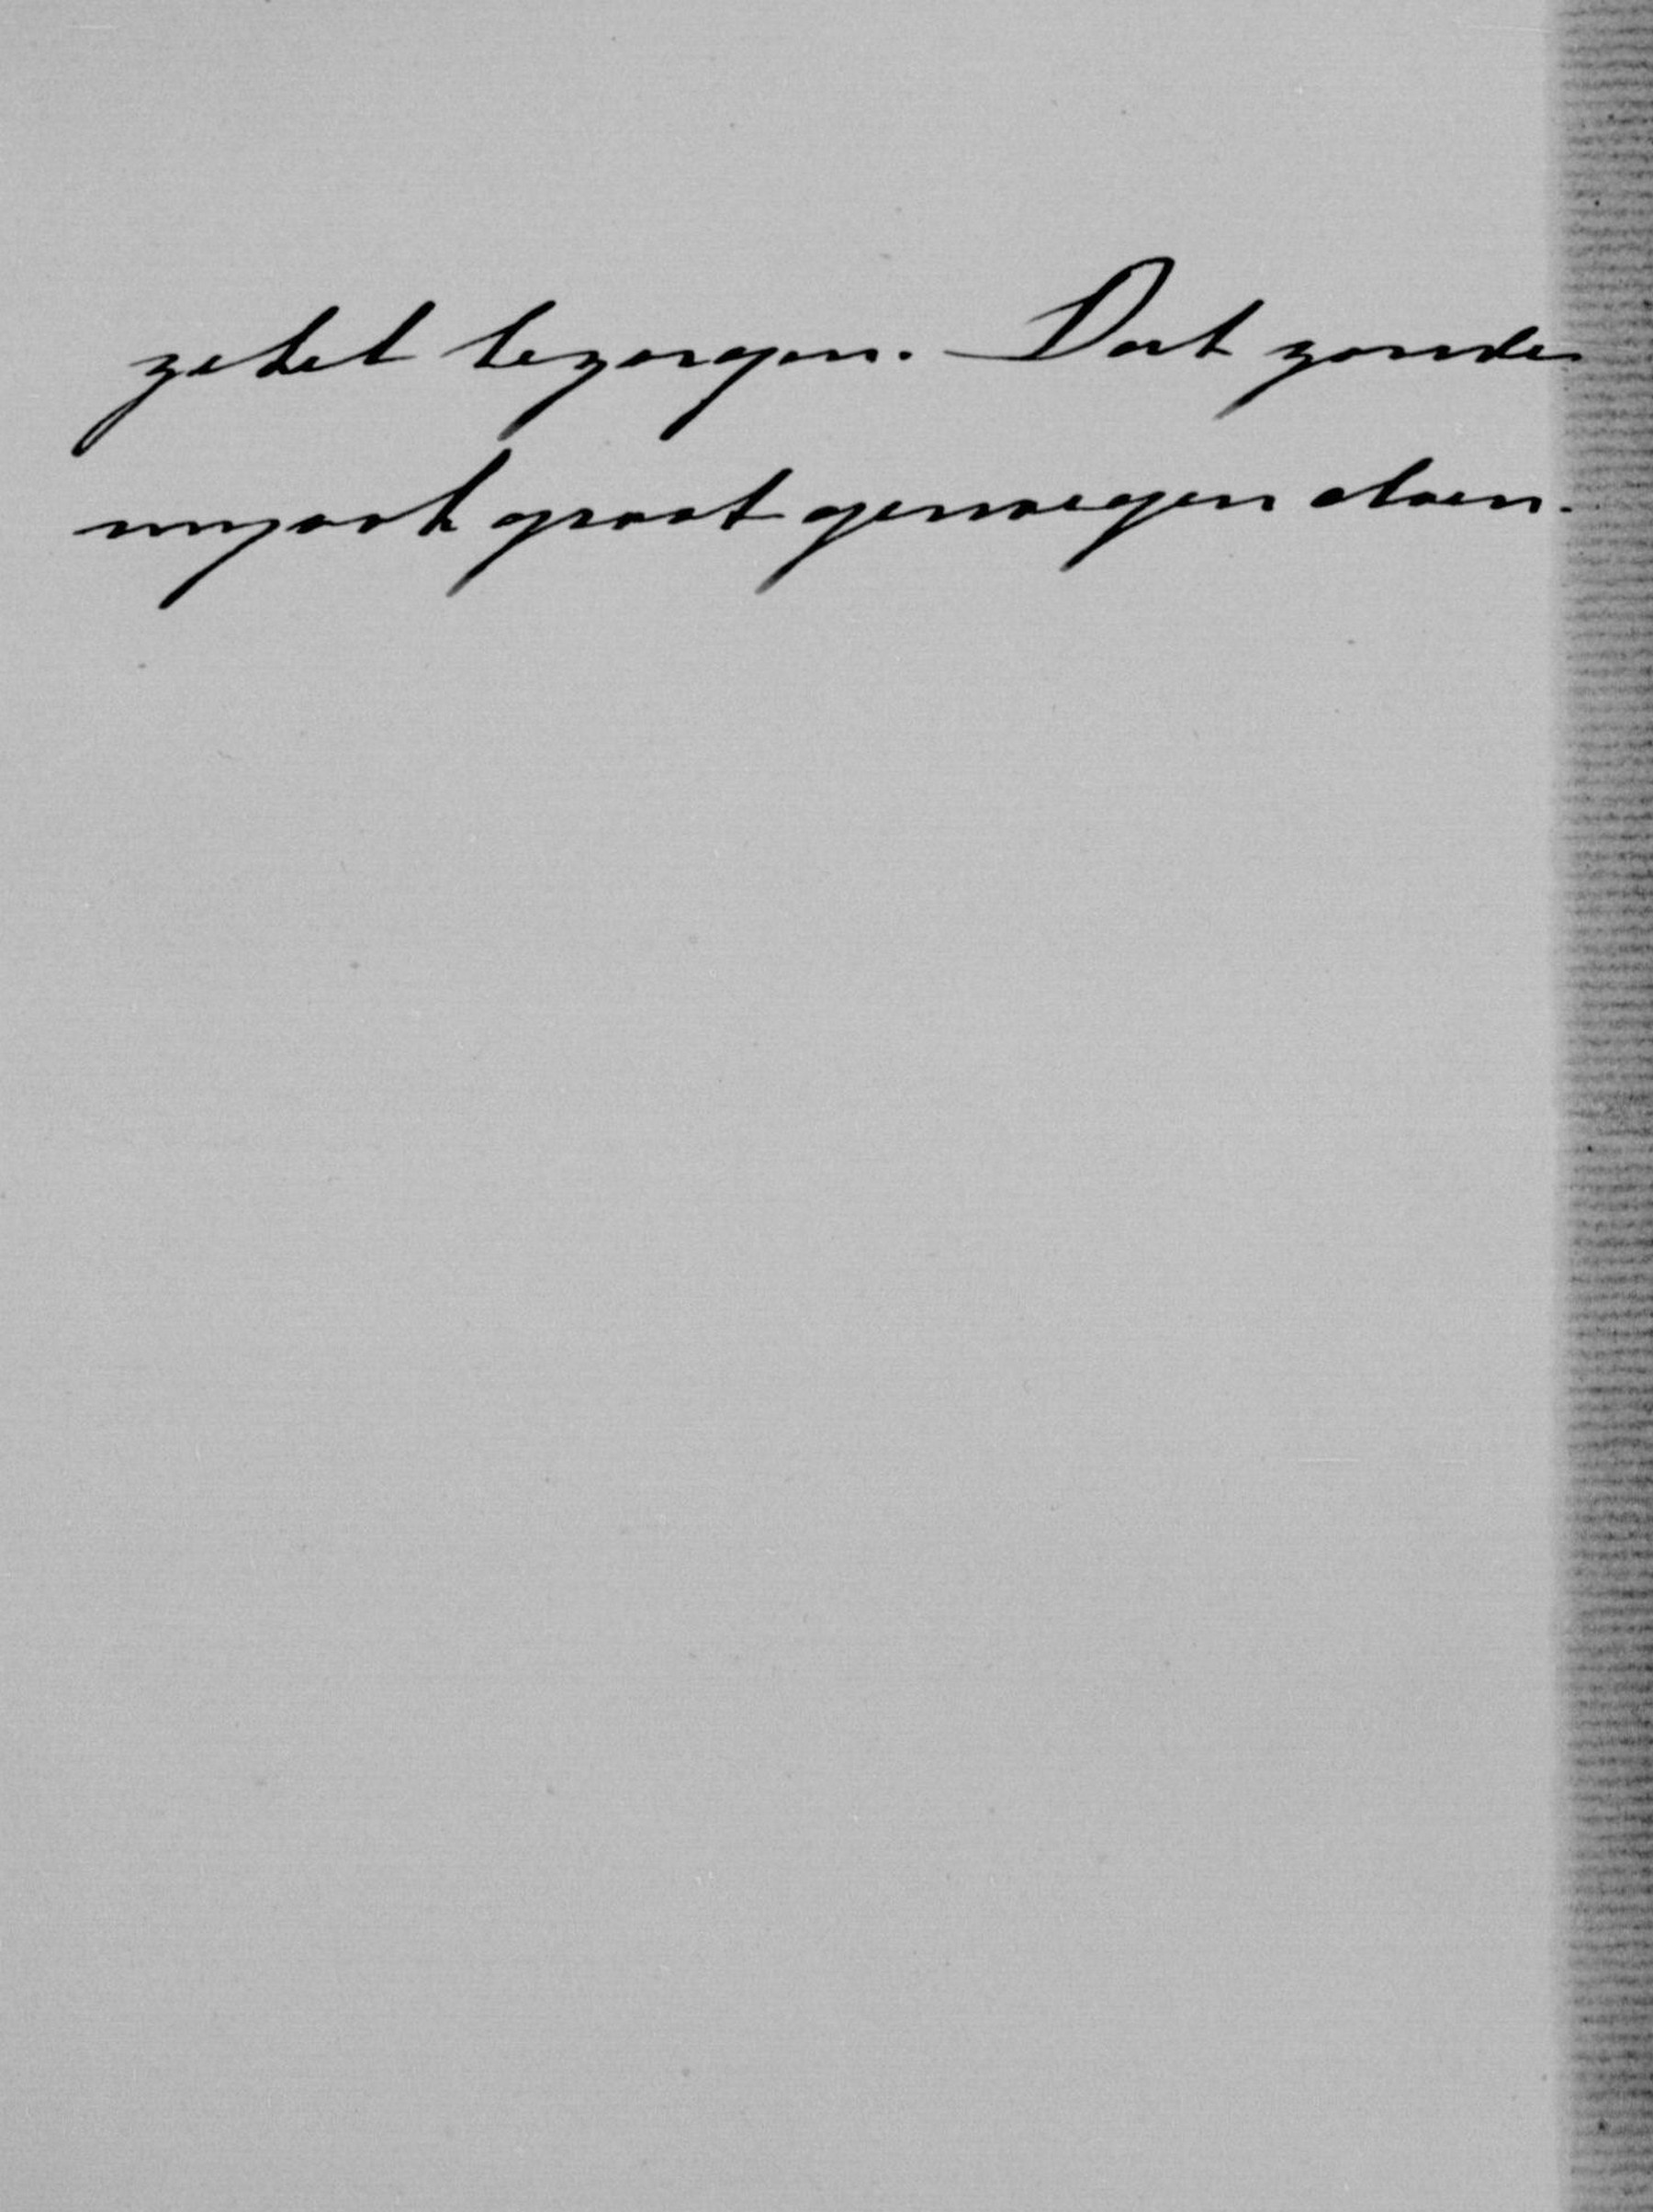 zetel bezorgen. Dat zoude
mij ook groot genoegen doen.